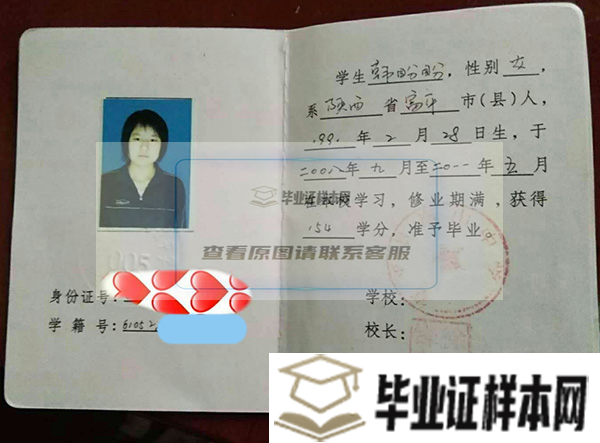 学生韩盼盼,性别女,
系陕西省富平市(县)人,
1991年2月28日生,于
二00八年九月至二0一一年五月
在我校学习,修业期满,获得
154学分,准予毕业。
学校:
校长:
身份证号:
学籍号:61052
毕业证样本网
查看原图请联系客服
毕业证样本网